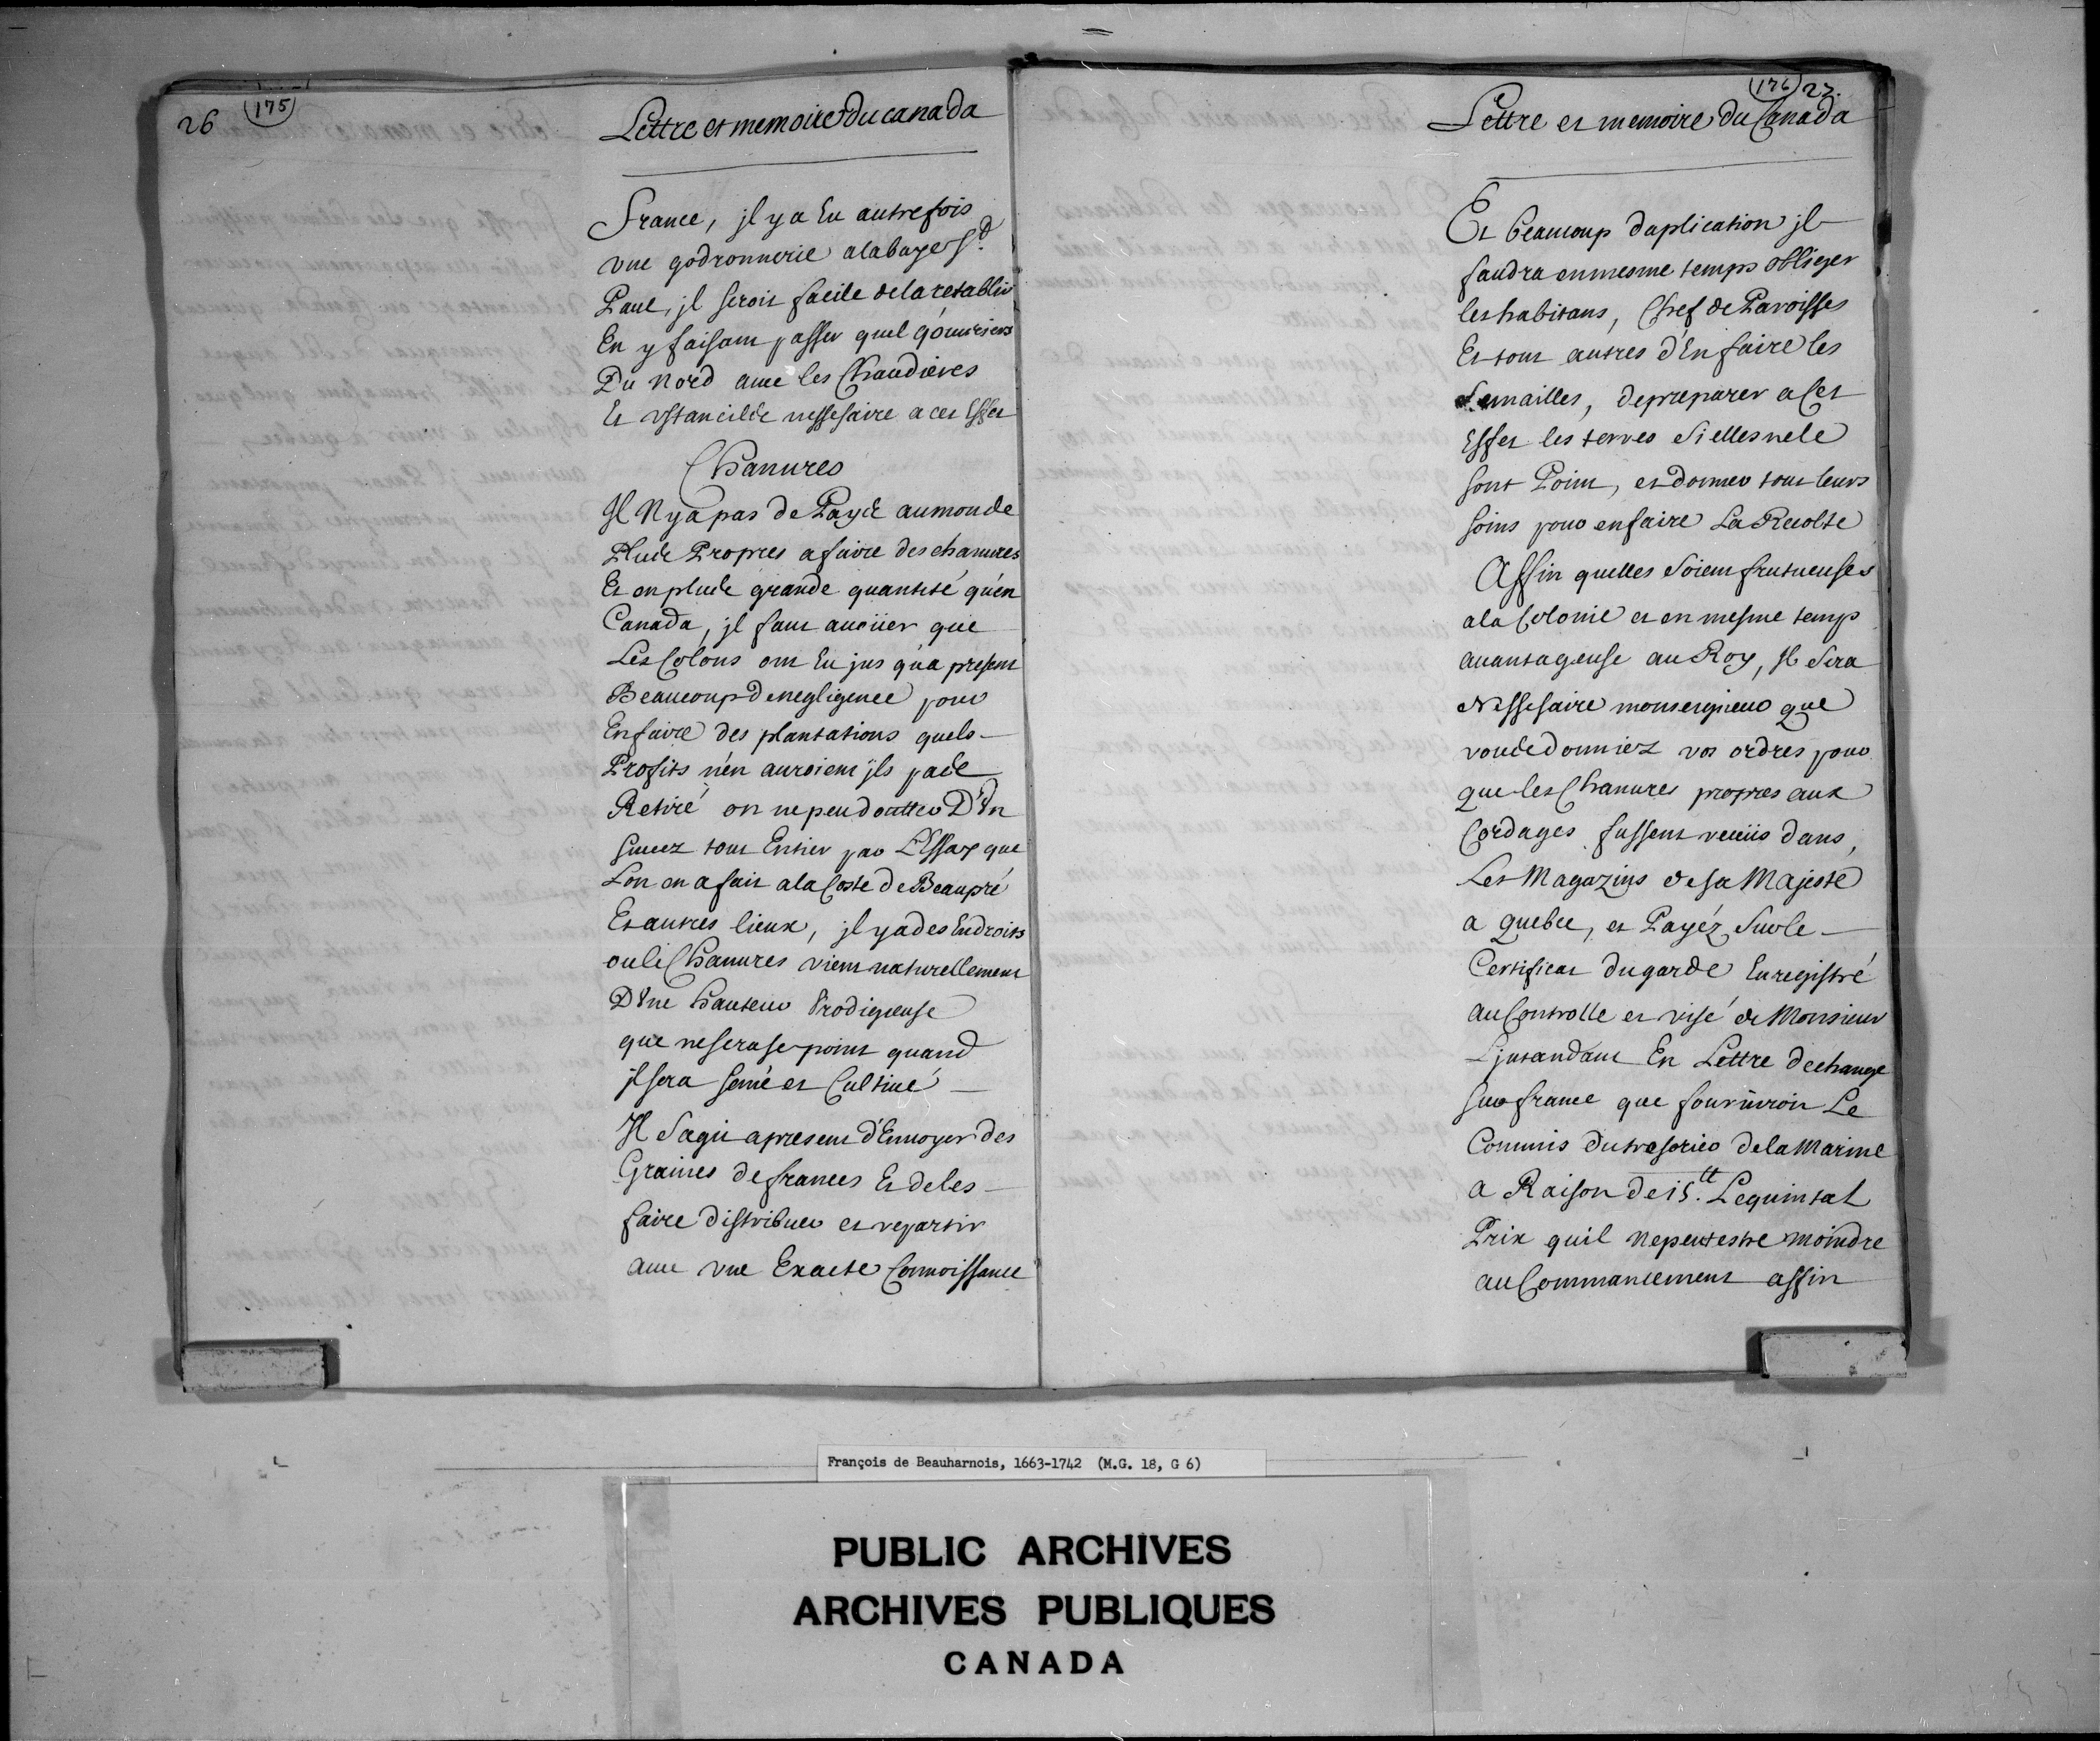 26 (175)
Lettre et memoire Du canada
France, jl y a Eu autrefois
vne godronnerie a la baye St
Paul, jl seroit facile de la restablir
En y faisant passer quel q'ouuriers
Du Nord auec les Chaudieres
Et vstancilde nessesaire a cet Effet
Chanures
Jl Ny a pas de Payis au monde
Plude Propres a faire des chanures
Et en plude grande quantité qu'en
Canada, jl faut auoüer que
Les Colons ont Eu jus qu'a present
Beaucoup de negligence pour
En faire des plantations quels
Profits n'en auroient jls pade
Retiré on ne peu doutter D'Vn
succez tout Entier par L'Essay que
Lon en a fait a la Coste de Beaupré
Et autres lieux, jl y a des Endroits
ou le Chanures vient naturellement
D'Vne hauteur Prodigieuse
que ne sera se point quand
jl sera semé et Cultiué
Jl S'agit a present d'Enuoyer des
Graines de frances Et de les
faire distribuer et repartir
auec vne Exacte Connoissance
(176) 27.
Lettre et memoire Du Canada
Et beaucoup d'aplication jl
faudra en mesme temps obliger
les habitans, Chef de Paroisses
Et tous autres d'En faire les
Semailles, de preparer a cet
Effet les terres Si elles ne le
sont Point, et donner tout leurs
soins pour en faire La Recolte
Affin quelles Soient frutueuses
a la Colonie et en mesme temp
auantageuse au Roy, Jl Sera
Nessesaire monseigneur que
voude donniez vos ordres pour
que les Chanures propres aux
Cordages fussent receüs dans
Les Magazins de sa Majesté
a quebec, et Payéz Sur le
Certificat du garde Enregistré
au Controlle et visé de Monsieur
L'jntandant En Lettre dechange
sur france que fourniroit Le
Commis du tresorier de la Marine
a Raison de 15.tt Le quintal
Prix quil ne peut estre moindre
au Commancement affin
François de Beauharnois, 1663-1742 (M.G. 18, G 6)
PUBLIC ARCHIVES
ARCHIVES PUBLIQUES
CANADA